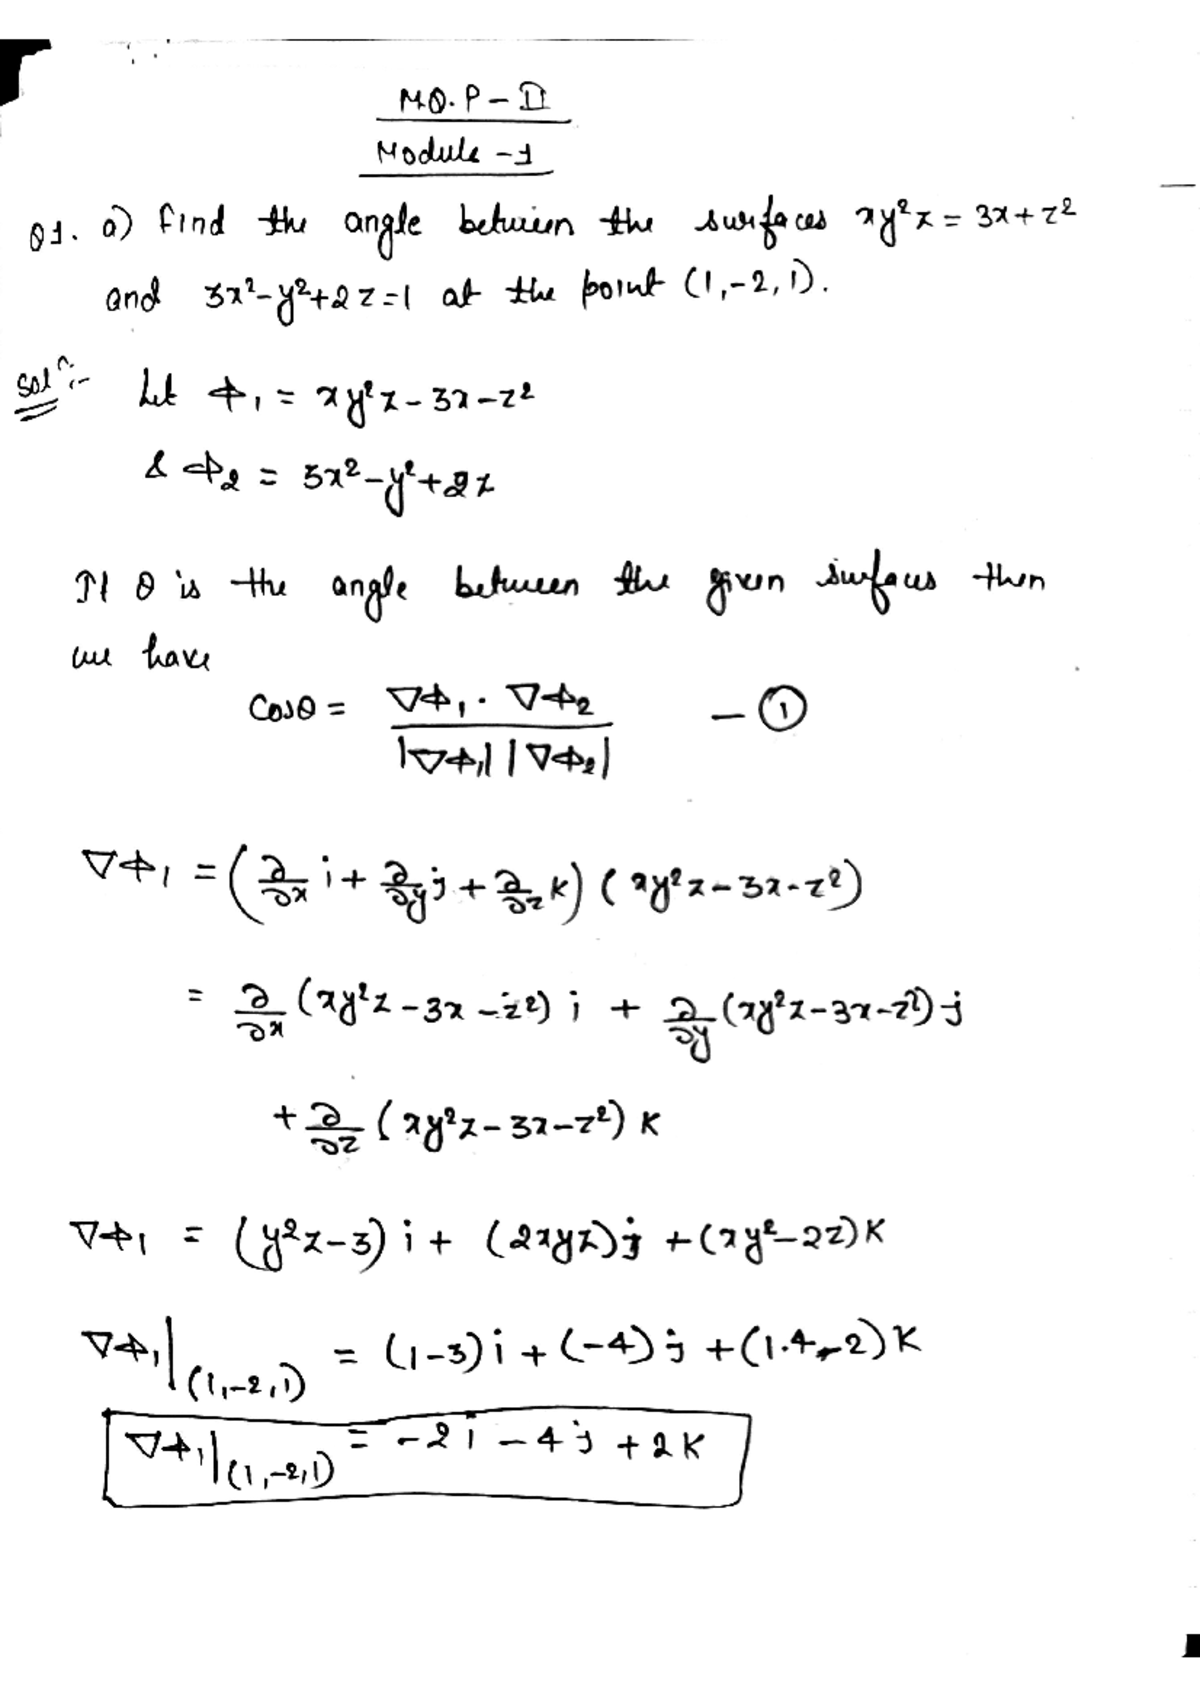 M.Q.P - II
Module - 1
Q1. a) Find the angle between the surfaces xy²z = 3x + z²
and 3x² - y² + 2z = 1 at the point (1, -2, 1).
Solⁿ:- Let Φ₁ = xy²z - 3x - z²
& Φ₂ = 3x² - y² + 2z
If θ is the angle between the given surfaces then
we have
Cosθ = ∇Φ₁ · ∇Φ₂ / |∇Φ₁| |∇Φ₂| — ①
∇Φ₁ = (∂/∂x i + ∂/∂y j + ∂/∂z k) (xy²z - 3x - z²)
= ∂/∂x (xy²z - 3x - z²) i + ∂/∂y (xy²z - 3x - z²) j
+ ∂/∂z (xy²z - 3x - z²) k
∇Φ₁ = (y²z - 3) i + (2xyz) j + (xy² - 2z) k
∇Φ₁|(1,-2,1) = (1-3) i + (-4) j + (1·4 - 2) k
∇Φ₁|(1,-2,1) = -2i - 4j + 2k